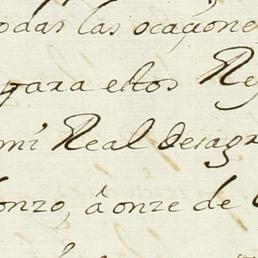 odas las ocaçione
para estos Re
mi Real desagr
onzo, â onze de